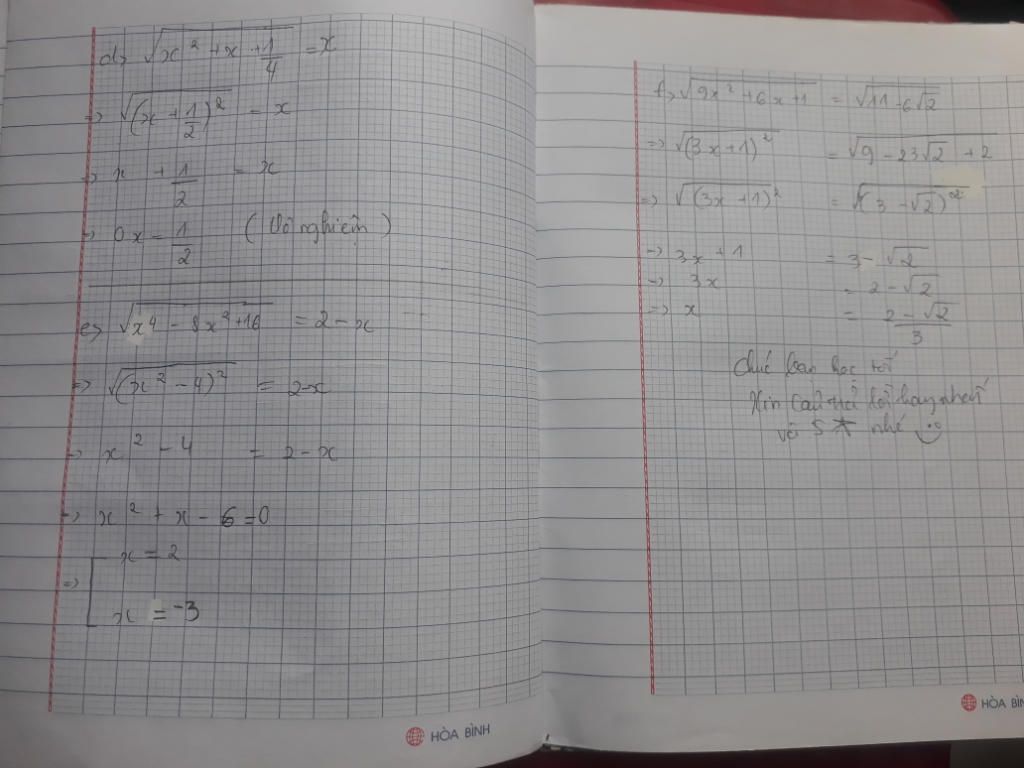 d> √(x² + x + 1/4) = x
=> √((x + 1/2)²) = x
=> x + 1/2 = x
=> 0x = 1/2 (Vô nghiệm)
e> √(x⁴ - 8x² + 16) = 2 - x
=> √((x² - 4)²) = 2 - x
=> x² - 4 = 2 - x
=> x² + x - 6 = 0
=> [ x = 2
x = -3
HÒA BÌNH
f> √(9x² + 6x + 1) = √(11 - 6√2)
=> √((3x + 1)²) = √(9 - 23√2 + 2)
=> √((3x + 1)²) = √((3 - √2)²)
=> 3x + 1 = 3 - √2
=> 3x = 2 - √2
=> x = (2 - √2)/3
chúc bạn học tốt
Xin câu trả lời hay nhất
với 5 ☆ nhé
HÒA BÌN